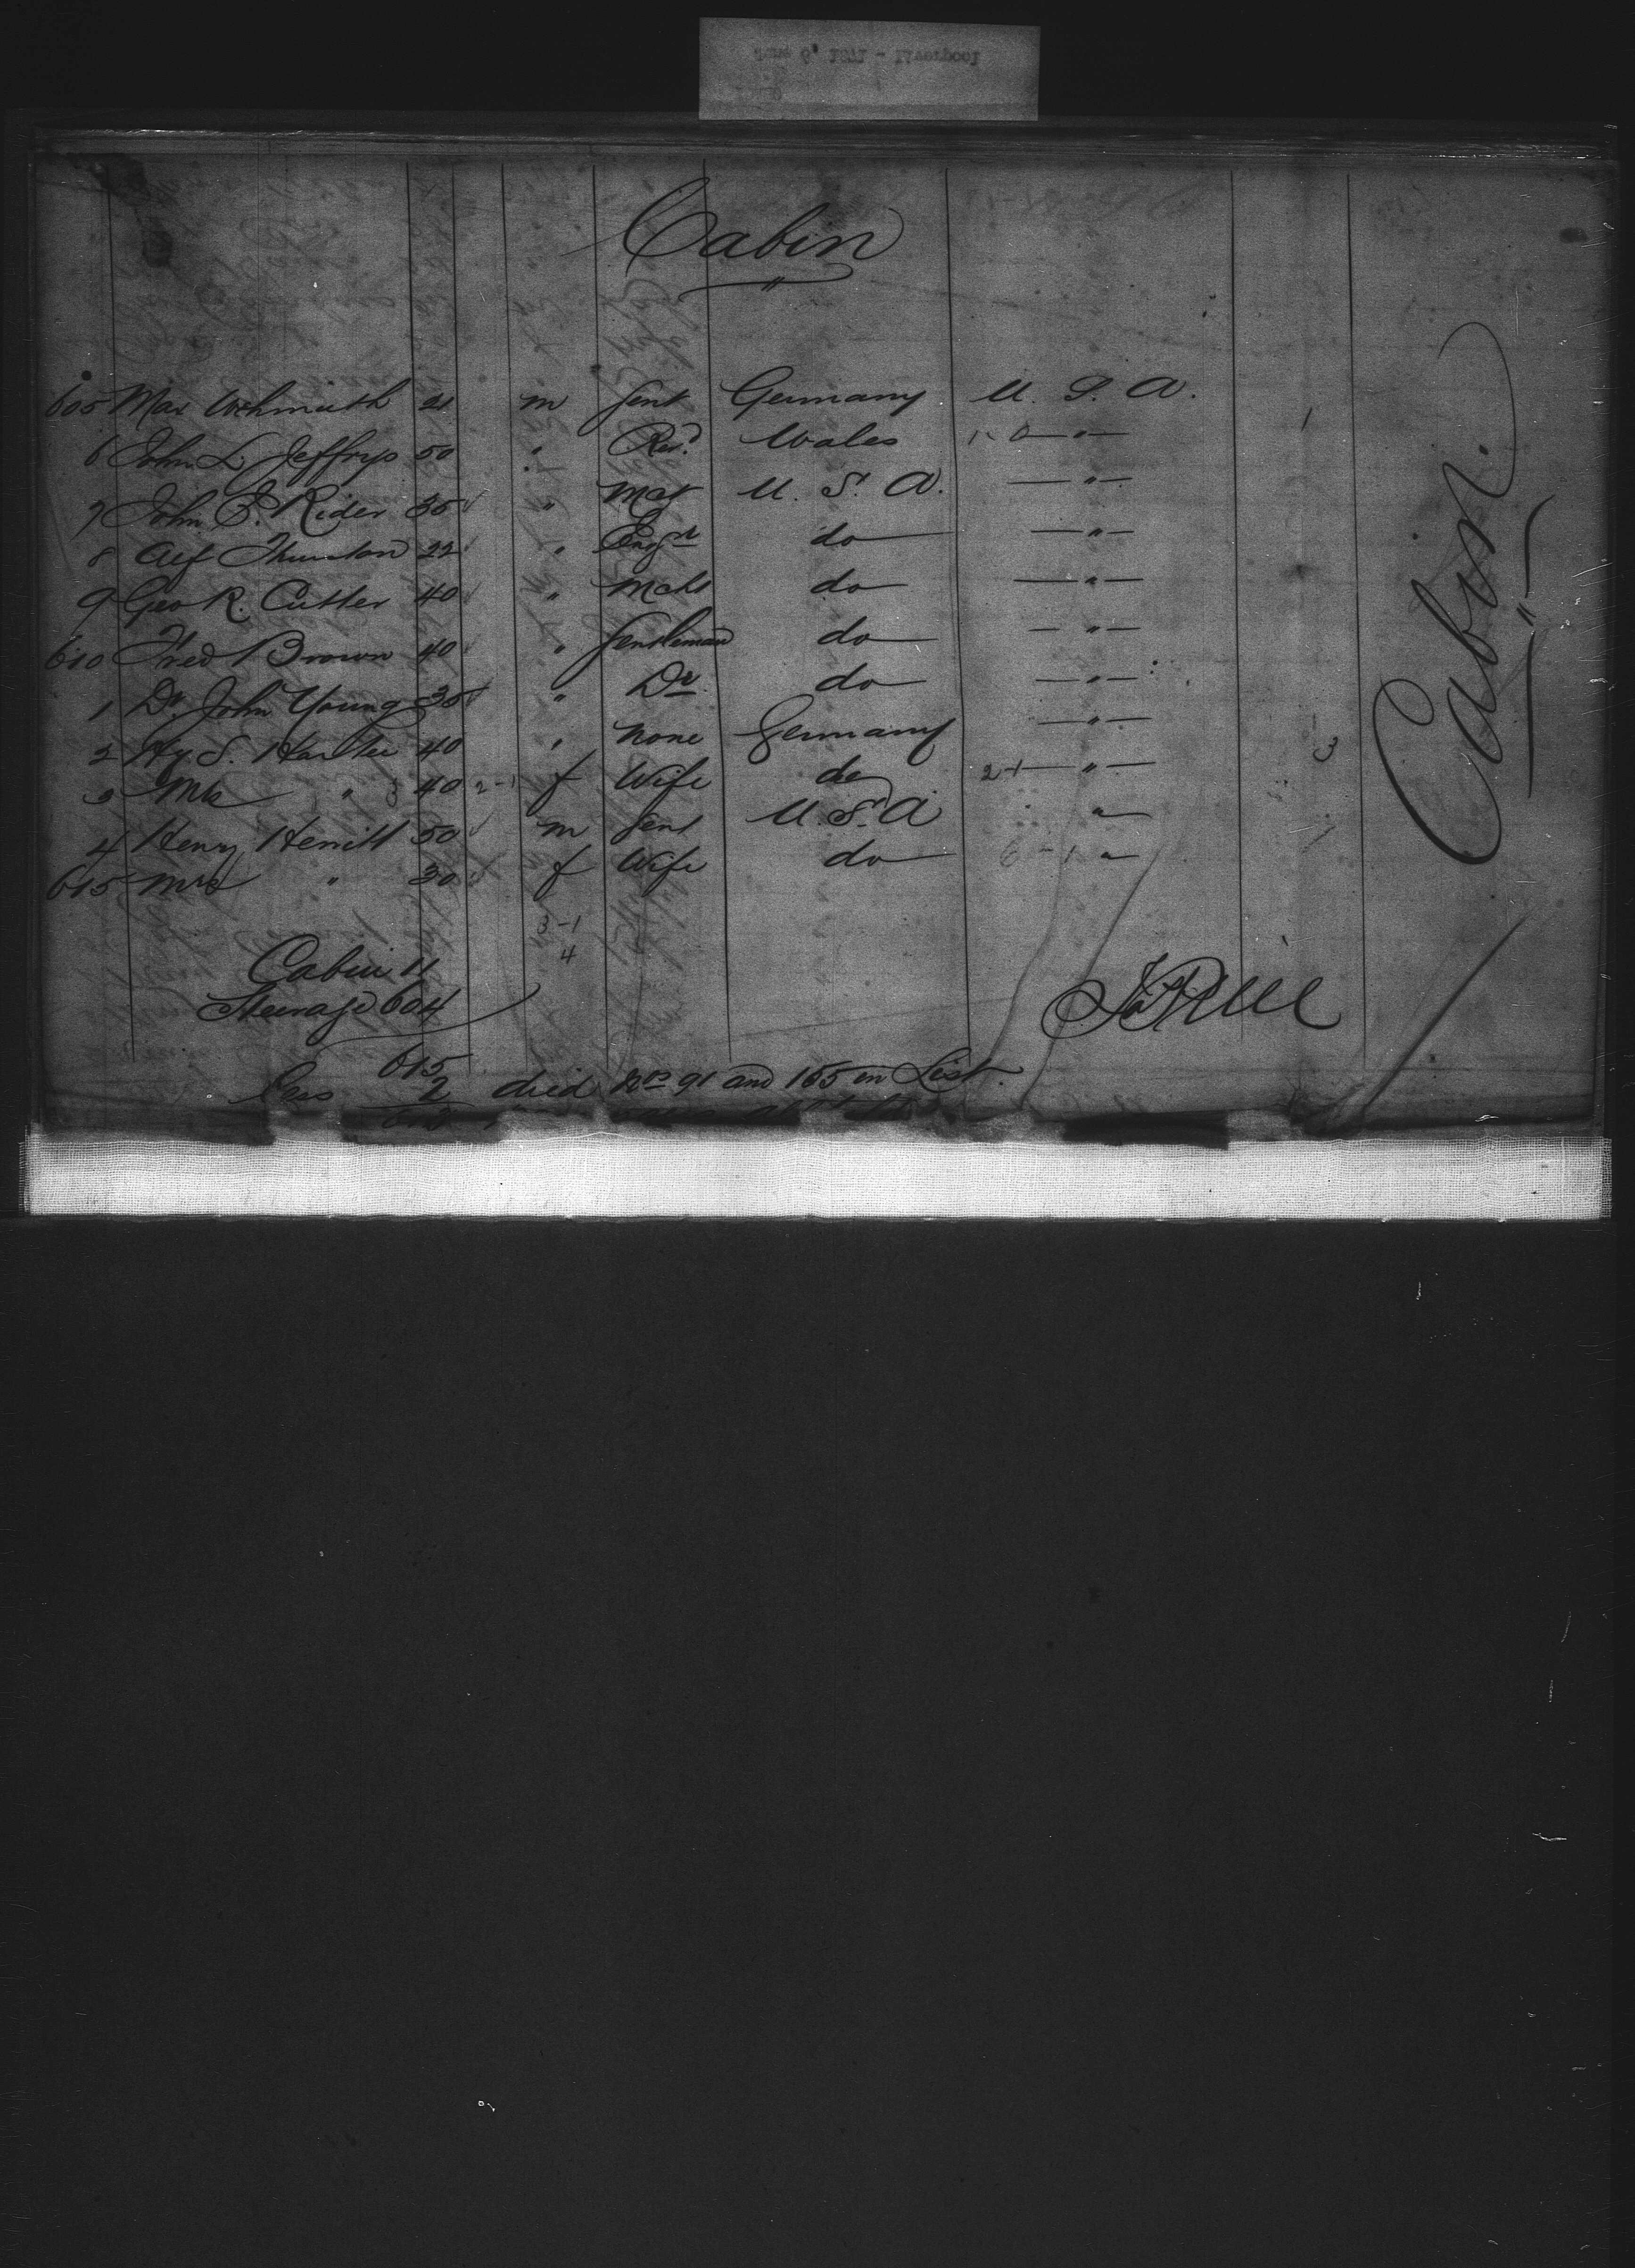 June 6, 1871 - Liverpool
Cabin
605 Max 21 m Gent Germany U. S. A.
6 John L. Jeffrys 50 " Revd Wales 1-0 — " —
7 John P. Rider 35 " Mct U. S. A. — " —
8 Alf Thurston 22 " Engr do — " —
9 Geo R. Cutter 40 " Mcht do — " —
610 Fred Brown 40 " Gentleman do — " —
1 Dr. John Young 35 " Dr. do — " —
2 Hy S. 40 " None Germany — " —
3 Mrs " 40 2-1 f Wife do 2-1 — " —
4 Henry 50 m Gent U. S. A "
615 Mrs " 30 f Wife do 6-1 "
3-1
4
Cabin 11
Steerage 604
615
Less 2 died Nos 91 and 165 on List.
613
Cabin.